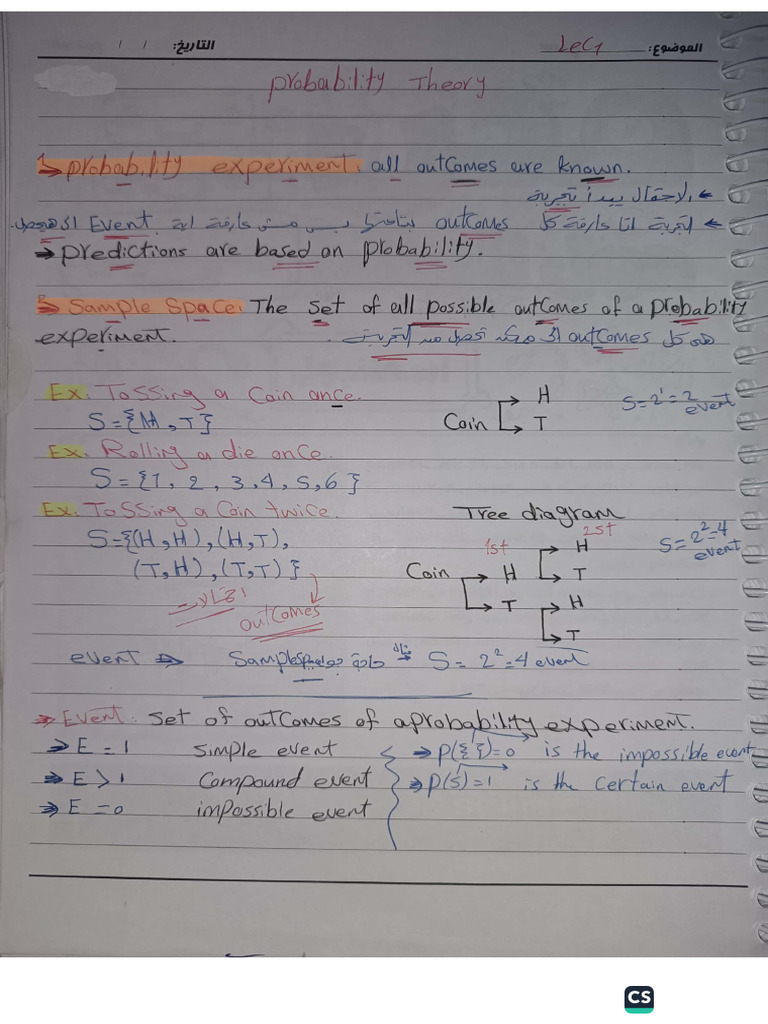 الموضوع: Lec1 التاريخ: / /
Probability Theory
1→ probability experiment: all outcomes are known.
← الاحتمال يبدأ تجربة
← التجربة انا عارفة كل outcomes بتاعتها بس مش عارفة اية Event الى هيحصل.
→ predictions are based on probability.
2→ Sample Space: The set of all possible outcomes of a probability
experiment. هو كل outcomes الى ممكن تحصل من التجربة.
Ex: Tossing a Coin once.
S={H, T}
Coin → H
→ T
S=2¹=2
event
Ex: Rolling a die once.
S={1, 2, 3, 4, 5, 6}
Ex: Tossing a Coin twice.
S={(H,H),(H,T),
(T,H),(T,T)}
outcomes
Tree diagram
1st 2st
Coin → H → H
→ T
→ T → H
→ T
S=2²=4
event
event → Sample space S= 2²=4 event
→ Event: Set of outcomes of a probability experiment.
→ E = 1 Simple event
→ E > 1 Compound event
→ E = 0 impossible event
→ P({ })=0 is the impossible event
→ P(S)=1 is the certain event
CS